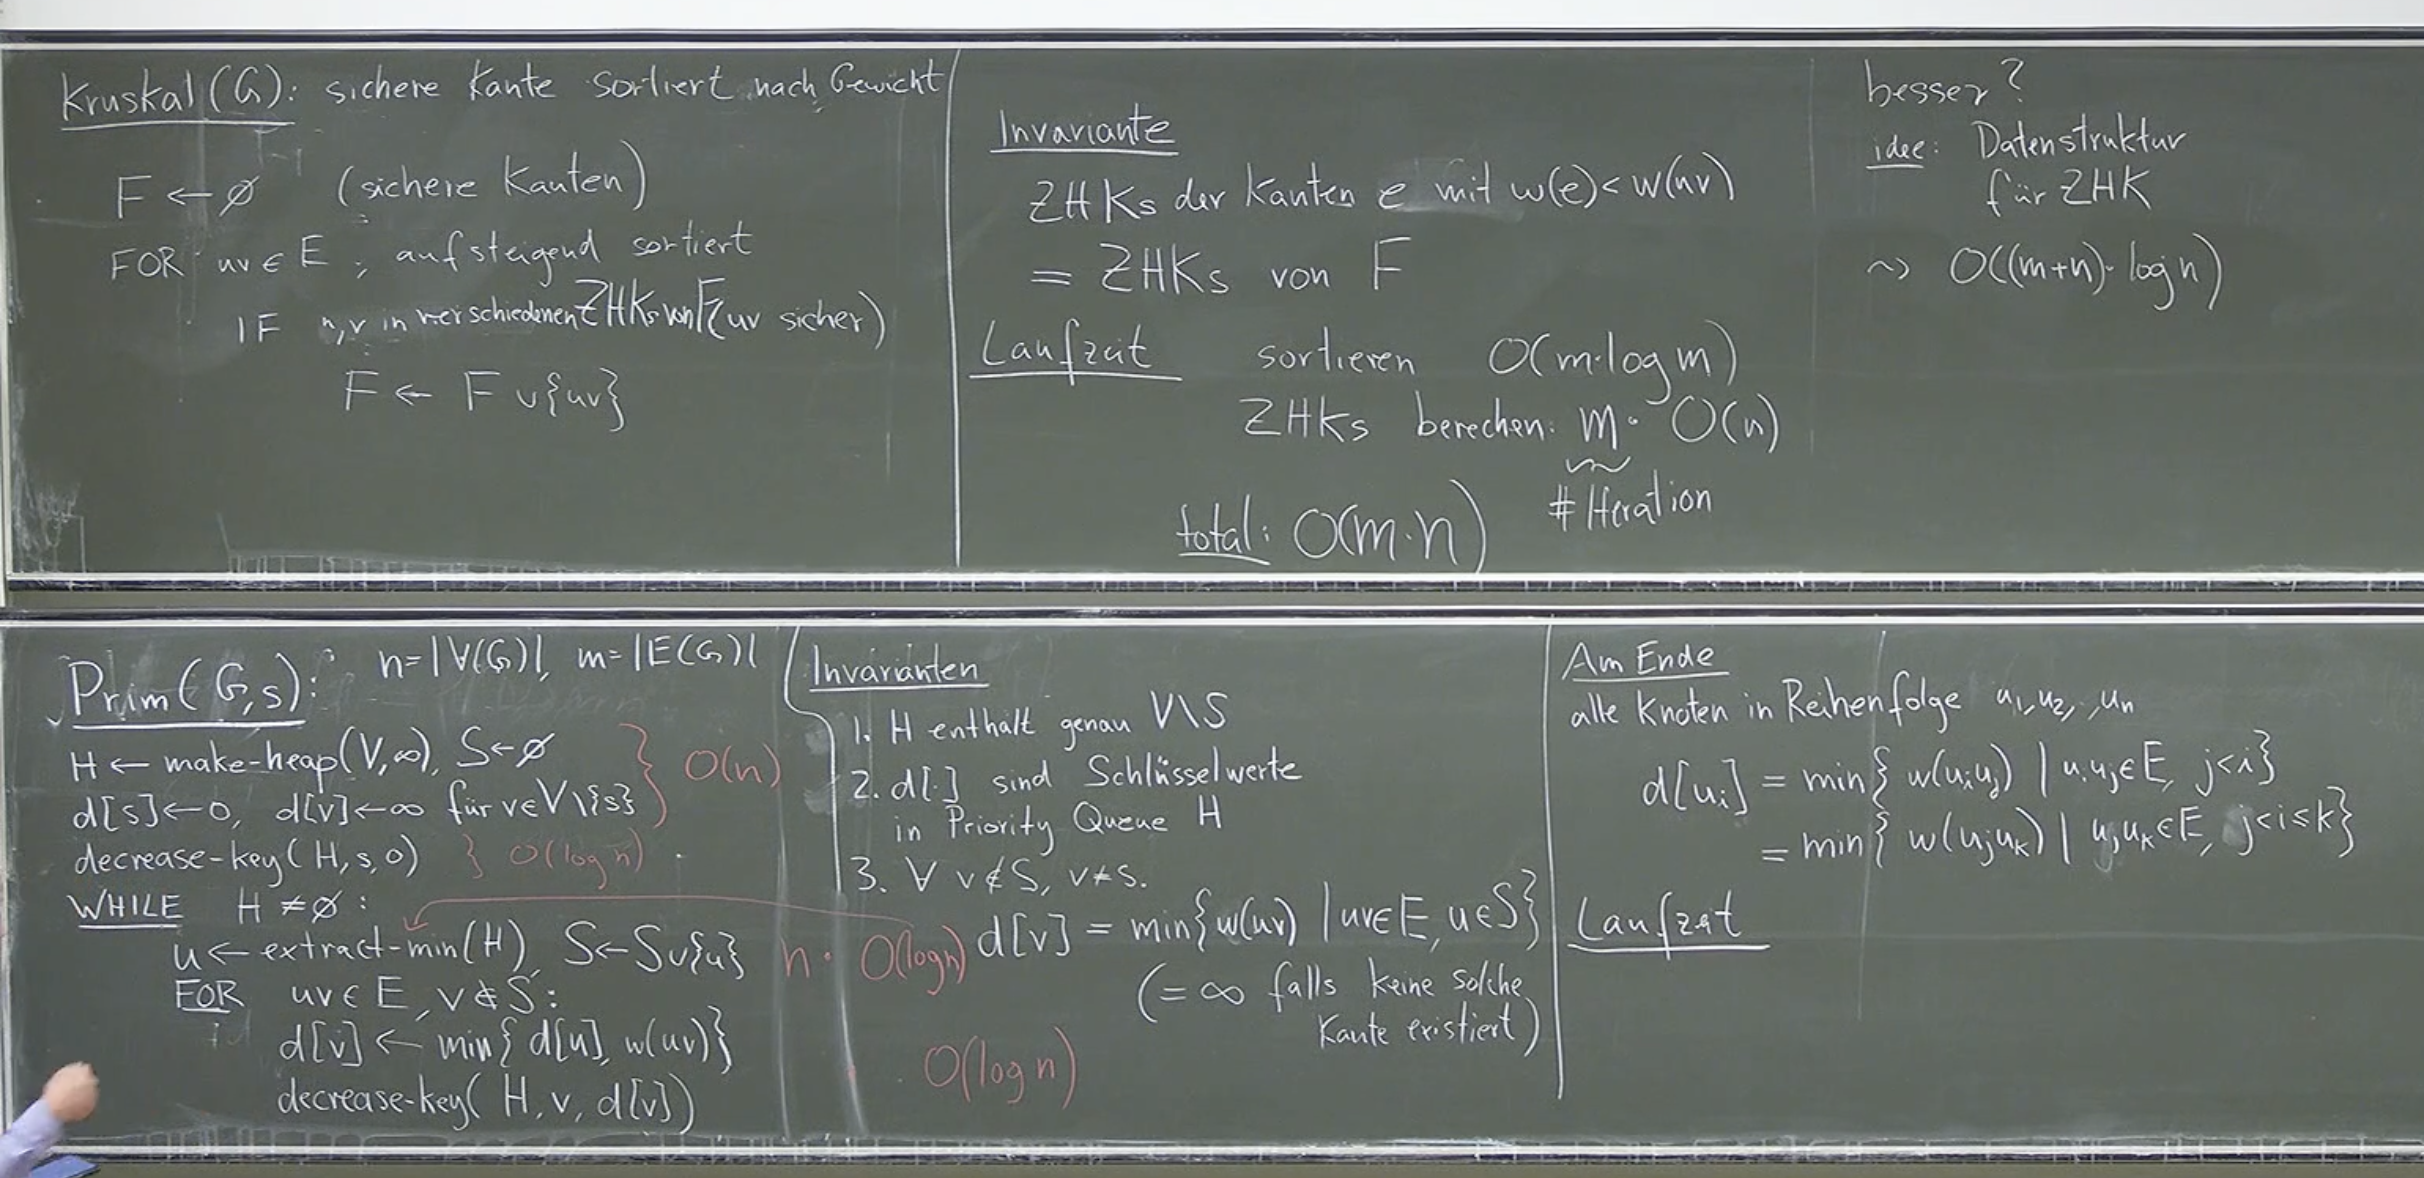 Kruskal(G): sichere Kante sortiert nach Gewicht
F ← ∅ (sichere Kanten)
FOR uv ∈ E, aufsteigend sortiert
IF u,v in verschiedenen ZHKs von F (uv sicher)
F ← F ∪ {uv}
Invariante
ZHKs der Kanten e mit w(e) < w(uv)
= ZHKs von F
Laufzeit sortieren O(m·log m)
ZHKs berechen: m · O(n)
# Iteration
total: O(m·n)
besser?
idee: Datenstruktur
für ZHK
~> O((m+n)·log n)
Prim(G,s): n=|V(G)|, m=|E(G)|
H ← make-heap(V,∞), S←∅
d[s]←0, d[v]←∞ für v∈V\{s} } O(n)
decrease-key(H,s,0) } O(log n)
WHILE H ≠ ∅ :
u ← extract-min(H), S←S∪{u} n · O(log n)
FOR uv ∈ E, v ∉ S:
d[v] ← min{d[u], w(uv)}
decrease-key(H, v, d[v]) O(log n)
Invarianten
1. H enthält genau V\S
2. d[.] sind Schlüsselwerte
in Priority Queue H
3. ∀ v ∉ S, v ≠ s.
d[v] = min{w(uv) | uv∈E, u∈S}
(= ∞ falls keine solche
Kante existiert)
Am Ende
alle Knoten in Reihenfolge u₁,u₂,..,uₙ
d[uᵢ] = min{ w(uᵢuⱼ) | uᵢuⱼ∈E, j<i}
= min{ w(uⱼuₖ) | uⱼuₖ∈E, j<i≤k}
Laufzeit